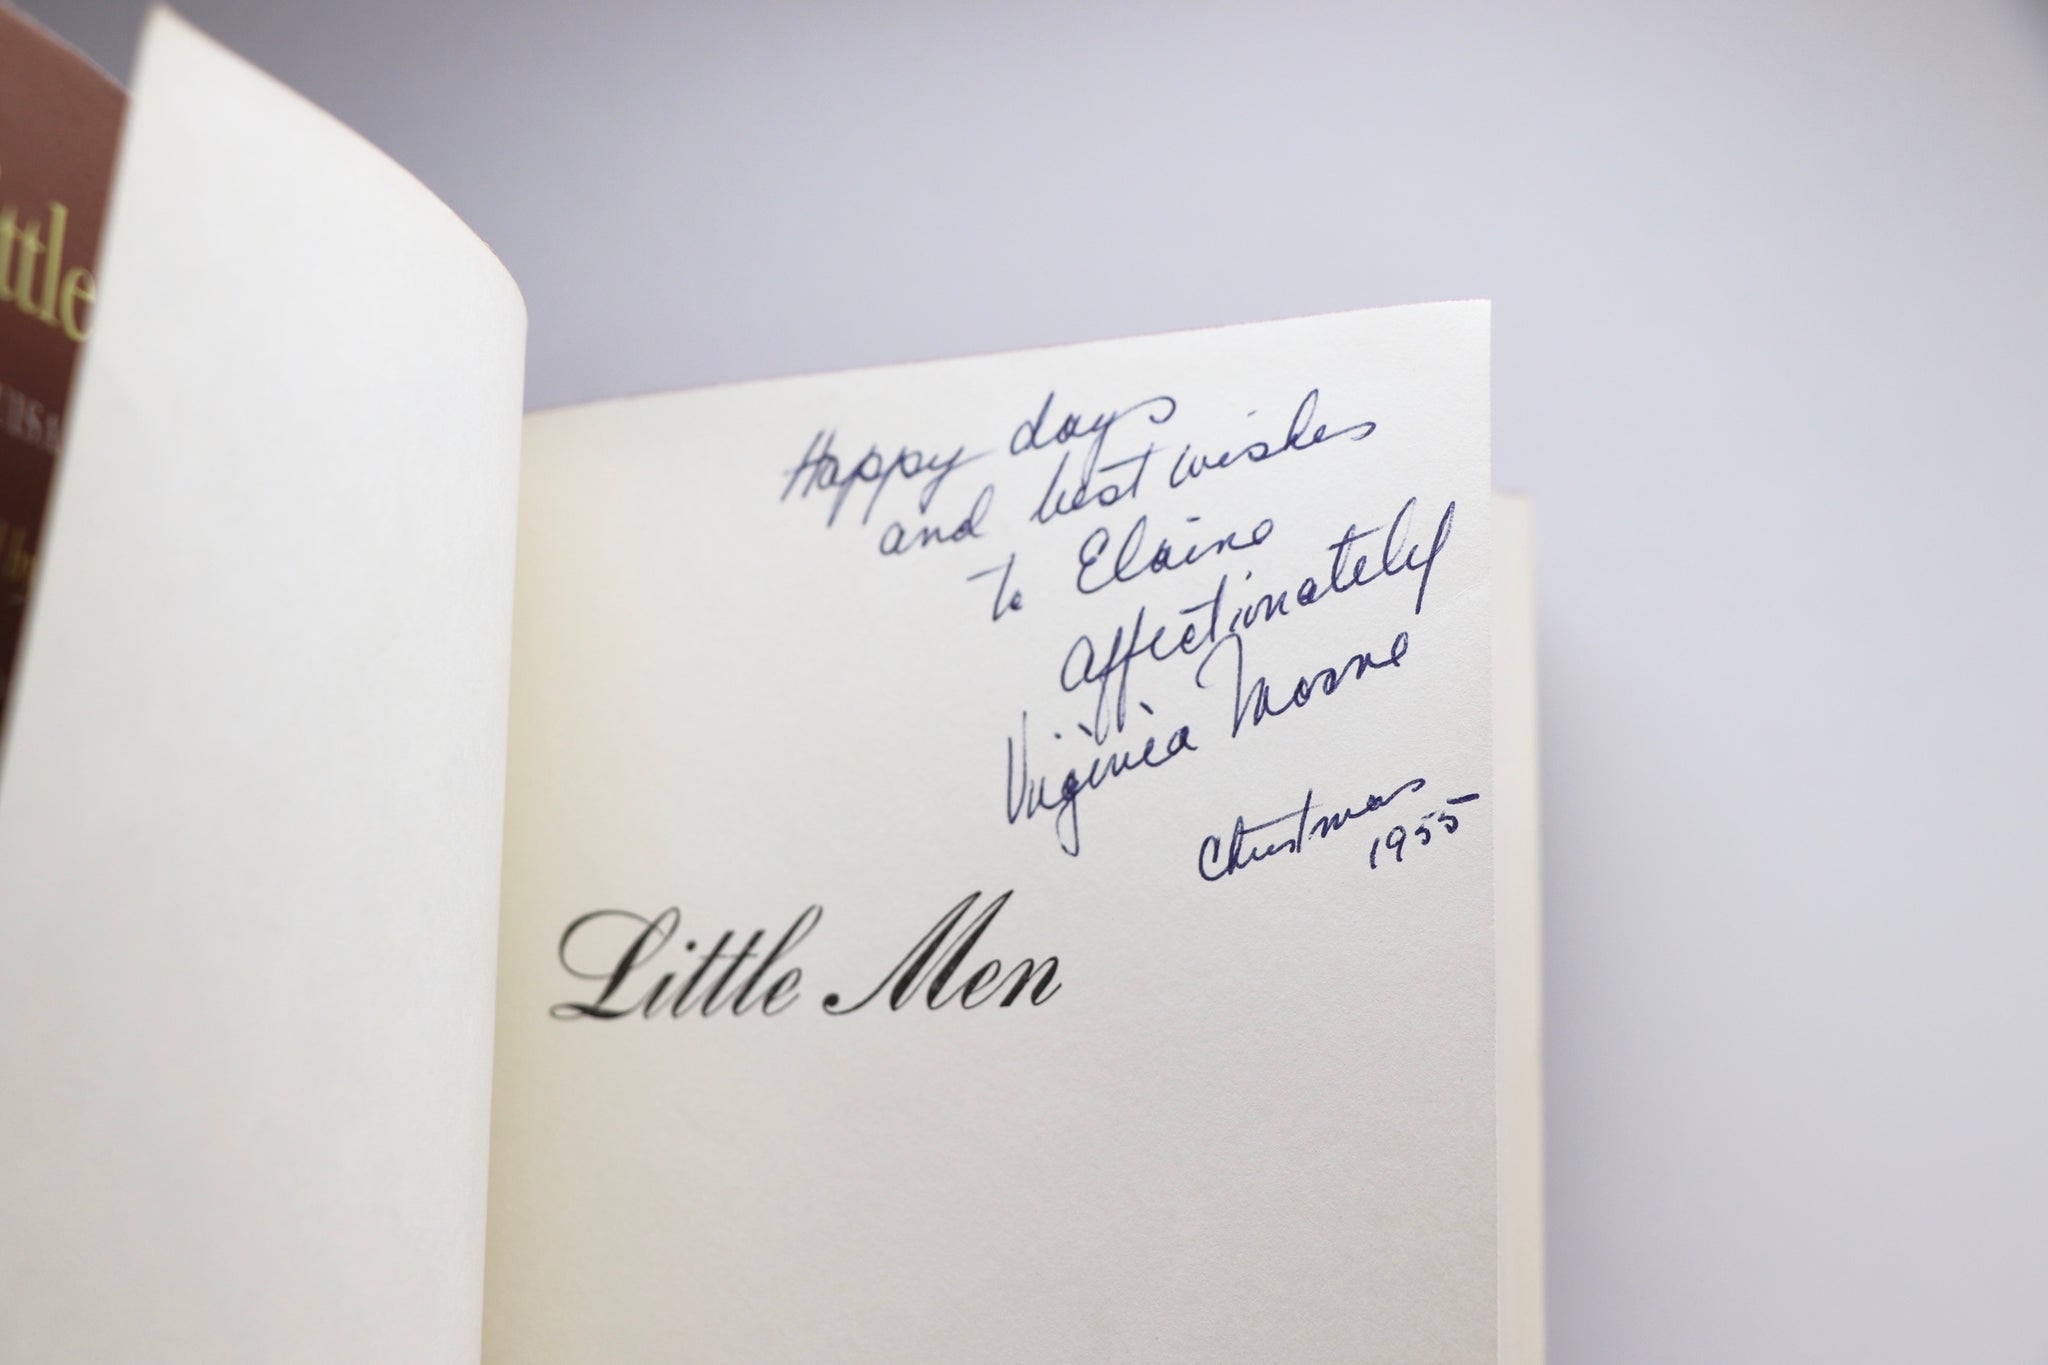 ttle
Happy days
and best wishes
to Elaine
Affectionately
Virginia
Christmas
1955
Little Men